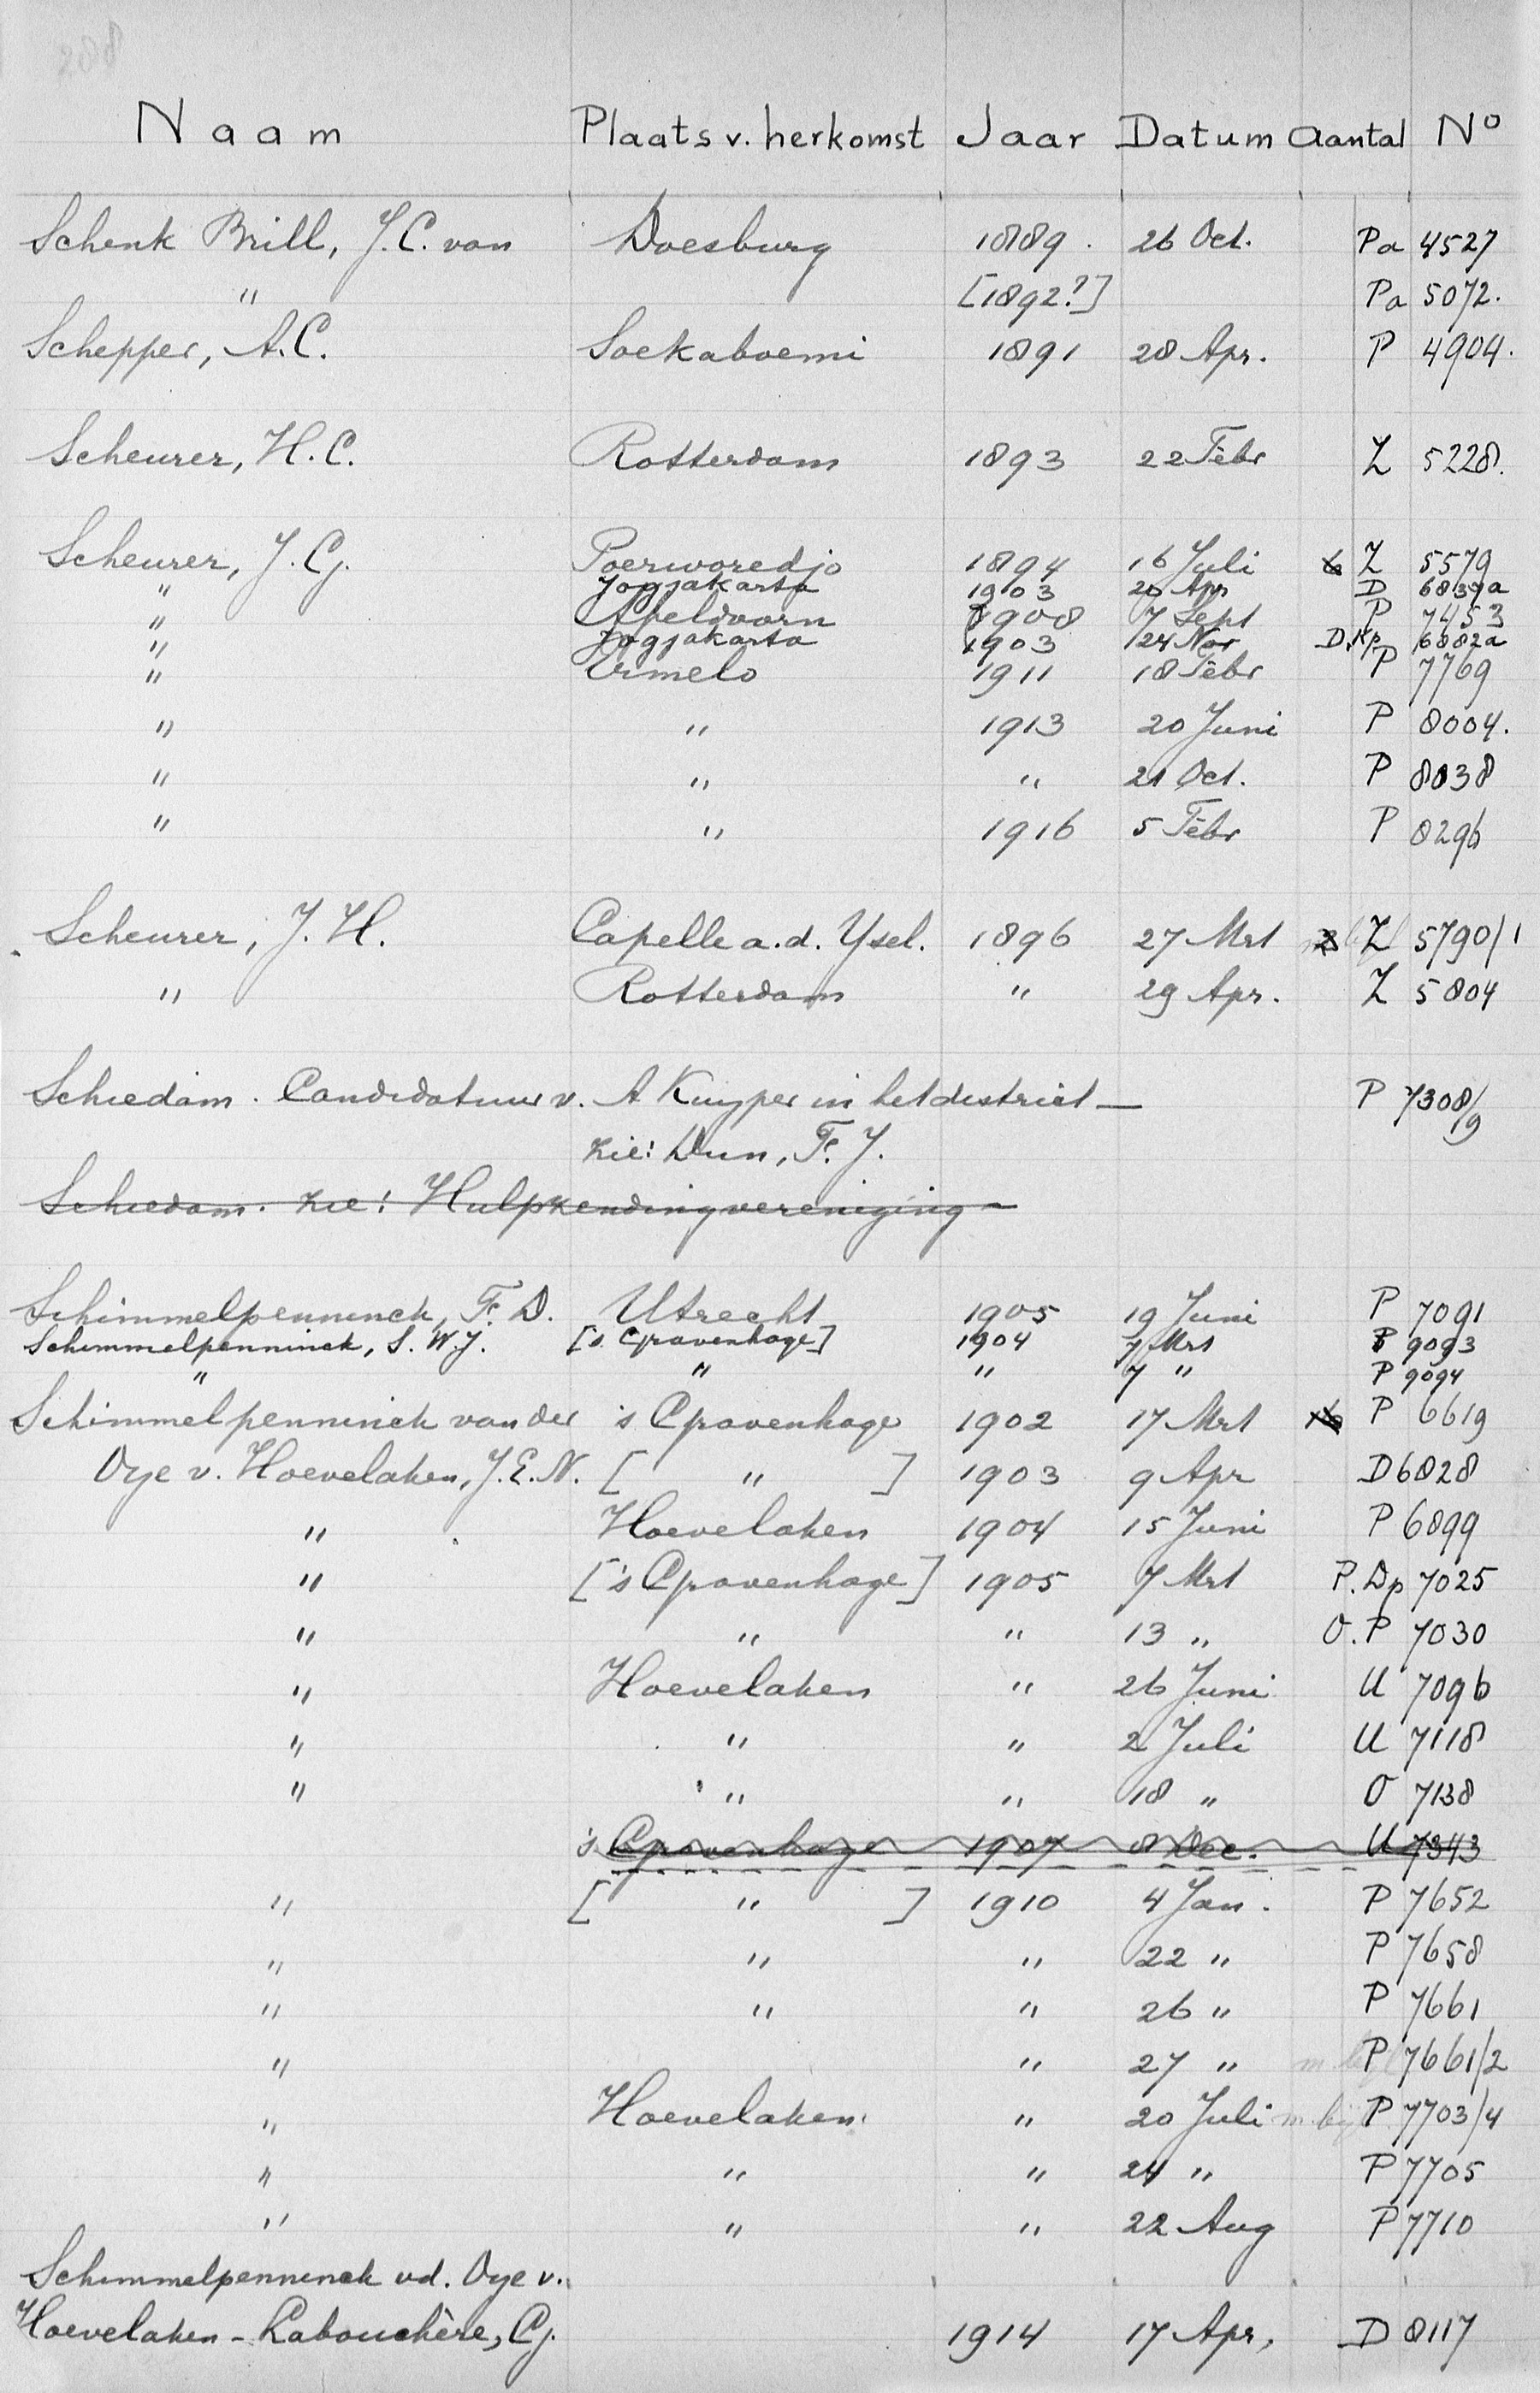 Naam Plaats v. herkomst Jaar Datum Aantal Nº
Schenk Brill, J.C. van Doesburg 1889. 26 Oct. Pa 4527
" [1892?] Pa 5072.
Schepper, A.C. Soekaboemi 1891 28 Apr. P 4904.
Scheurer, H.C. Rotterdam 1893 22 Febr Z 5228.
Scheurer, J.G. Poerworedjo 1894 16 Juli Z 5579
" Jogjakarta 1903 20 Apr D 6837a
" Apeldoorn 1908 7 Sept P 7453
" Jogjakarta 1903 24 Nov D.Kp. 6882a
" Ermelo 1911 18 Febr P 7769
" " 1913 20 Juni P 8004.
" " " 21 Oct. P 8038
" " 1916 5 Febr P 8296
Scheurer, J.H. Capelle a.d. Ysel. 1896 27 Mrt Z 5790/1
" Rotterdam " 29 Apr. Z 5804
Schiedam. Candidatuur v. A Kuyper in het district — P 7308/9
zie: Dun, F.J.
Schiedam. zie: Hulpzendingvereniging -
Schimmelpenninck, F.D. Utrecht 1905 19 Juni P 7091
Schimmelpenninck, S.W.J. ['s Gravenhage] 1904 7 Mrt P 9093
" " " 7 " P 9094
Schimmelpenninck van der 's Gravenhage 1902 17 Mrt P 6619
Oye v. Hoevelaken, J.E.N. [ " ] 1903 9 Apr D 6828
" Hoevelaken 1904 15 Juni P 6899
" ['s Gravenhage] 1905 7 Mrt P.Dp 7025
" " " 13 " O.P 7030
" Hoevelaken " 26 Juni U 7096
" " " 2 Juli U 7118
" " " 18 " O 7138
's Gravenhage 1907 8 Dec. U 7343
" [ " ] 1910 4 Jan. P 7652
" " " 22 " P 7658
" " " 26 " P 7661
" " 27 " P 7661/2
" Hoevelaken " 20 Juli m. bijl P 7703/4
" " " 24 " P 7705
" " " 22 Aug P 7710
Schimmelpenninck vd. Oye v.
Hoevelaken - Labouchère, G. 1914 17 Apr, D 8117